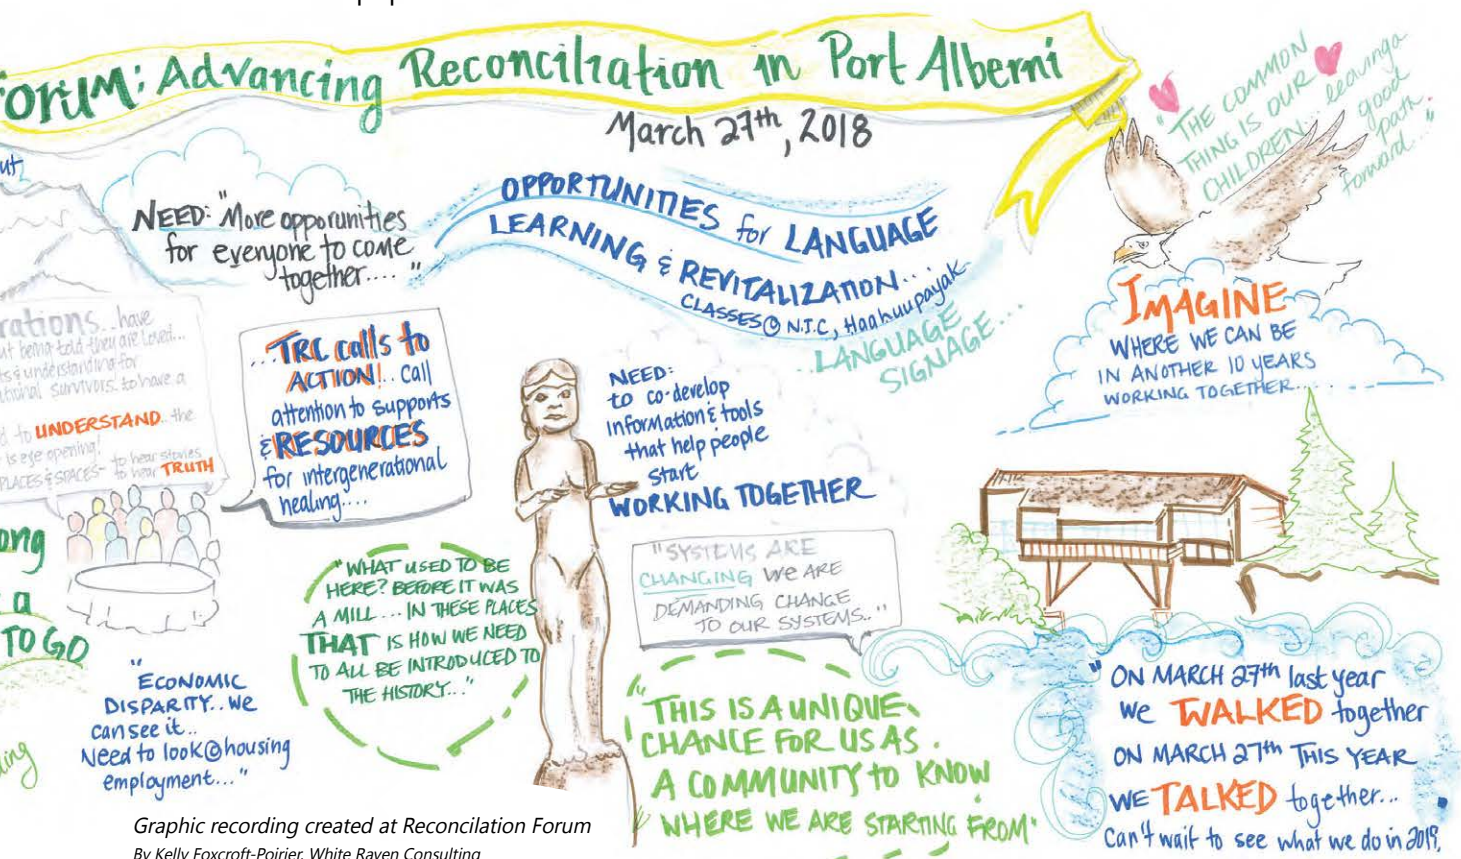 ORUM: Advancing Reconciliation in Port Alberni
March 27th, 2018
"THE COMMON
THING IS OUR
CHILDREN... leaving a
good
path
forward..."
NEED: "More opporunities
for everyone to come
together.... "
OPPORTUNITIES for LANGUAGE
LEARNING & REVITALIZATION...
CLASSES @ N.T.C, Haahuupayak
...LANGUAGE
SIGNAGE...
IMAGINE
WHERE WE CAN BE
IN ANOTHER 10 YEARS
WORKING TOGETHER....
rations...have
ut being told they are loved...
ts & understanding for
ational survivors. to have a
d to UNDERSTAND.. the
is eye opening!
PLACES & SPACES- to hear stories
to hear TRUTH
...TRC calls to
ACTION!.. call
attention to supports
& RESOURCES
for intergenerational
healing....
NEED:
to co-develop
information & tools
that help people
start
WORKING TOGETHER
"SYSTEMS ARE
CHANGING WE ARE
DEMANDING CHANGE
TO OUR SYSTEMS.."
ong
a
TO GO
"WHAT USED TO BE
HERE? BEFORE IT WAS
A MILL... IN THESE PLACES
THAT IS HOW WE NEED
TO ALL BE INTRODUCED TO
THE HISTORY..."
"ECONOMIC
DISPARITY.. WE
can see it..
Need to look @ housing
employment..."
"THIS IS A UNIQUE
CHANCE FOR US AS
A COMMUNITY to KNOW
WHERE WE ARE STARTING FROM"
"ON MARCH 27th last year
we WALKED together
ON MARCH 27th THIS YEAR
WE TALKED together...
Can't wait to see what we do in 2019.
Graphic recording created at Reconcilation Forum
By Kelly Foxcroft-Poirier, White Raven Consulting